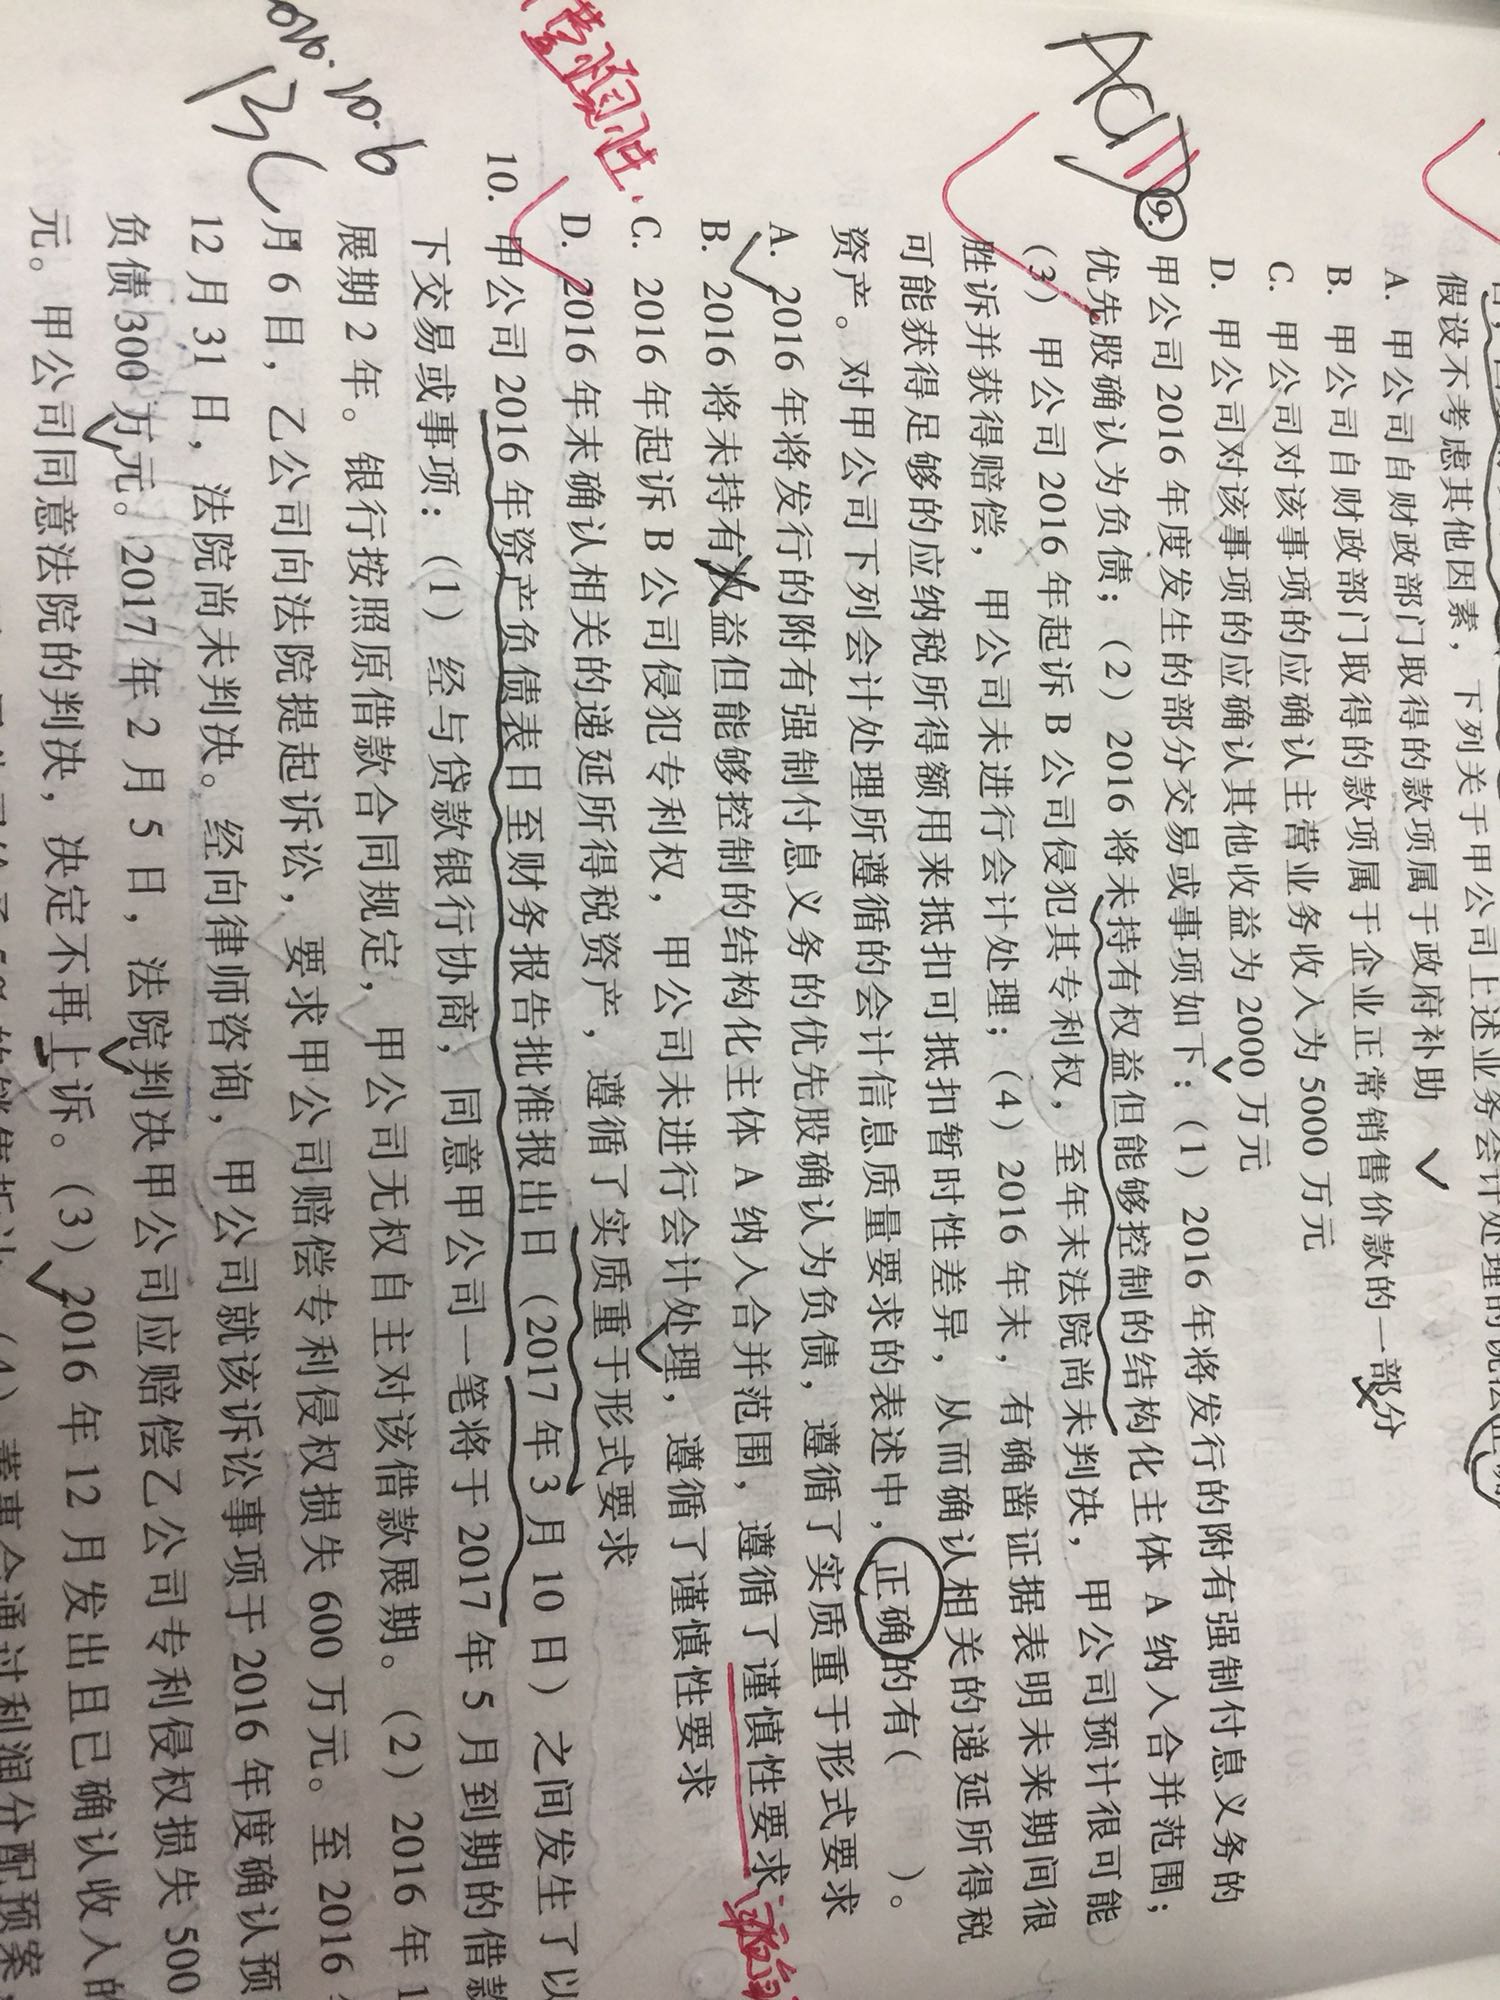 假设不考虑其他因素，下列关于甲公司上述业务会计处理的说法正确
A. 甲公司自财政部门取得的款项属于政府补助
B. 甲公司自财政部门取得的款项属于企业正常销售价款的一部分
C. 甲公司对该事项的应确认主营业务收入为 5000 万元
D. 甲公司对该事项的应确认其他收益为 2000 万元
9. 甲公司 2016 年度发生的部分交易或事项如下：（1）2016 年将发行的附有强制付息义务的
优先股确认为负债；（2）2016 将未持有权益但能够控制的结构化主体 A 纳入合并范围；
（3）甲公司 2016 年起诉 B 公司侵犯其专利权，至年末法院尚未判决，甲公司预计很可能
胜诉并获得赔偿，甲公司未进行会计处理；（4）2016 年末，有确凿证据表明未来期间很
可能获得足够的应纳税所得额用来抵扣可抵扣暂时性差异，从而确认相关的递延所得税
资产。对甲公司下列会计处理所遵循的会计信息质量要求的表述中，正确的有（ ）。
A. 2016 年将发行的附有强制付息义务的优先股确认为负债，遵循了实质重于形式要求
B. 2016 将未持有权益但能够控制的结构化主体 A 纳入合并范围，遵循了谨慎性要求
C. 2016 年起诉 B 公司侵犯专利权，甲公司未进行会计处理，遵循了谨慎性要求
D. 2016 年末确认相关的递延所得税资产，遵循了实质重于形式要求
谨慎性.
10. 甲公司 2016 年资产负债表日至财务报告批准报出日（2017 年 3 月 10 日）之间发生了以
下交易或事项：（1）经与贷款银行协商，同意甲公司一笔将于 2017 年 5 月到期的借款
展期 2 年。银行按照原借款合同规定，甲公司无权自主对该借款展期。（2）2016 年 1
月 6 日，乙公司向法院提起诉讼，要求甲公司赔偿专利侵权损失 600 万元。至 2016
12 月 31 日，法院尚未判决。经向律师咨询，甲公司就该诉讼事项于 2016 年度确认预
负债 300 万元。2017 年 2 月 5 日，法院判决甲公司应赔偿乙公司专利侵权损失 500
元。甲公司同意法院的判决，决定不再上诉。（3）2016 年 12 月发出且已确认收入的
（4）董事会通过利润分配预案，